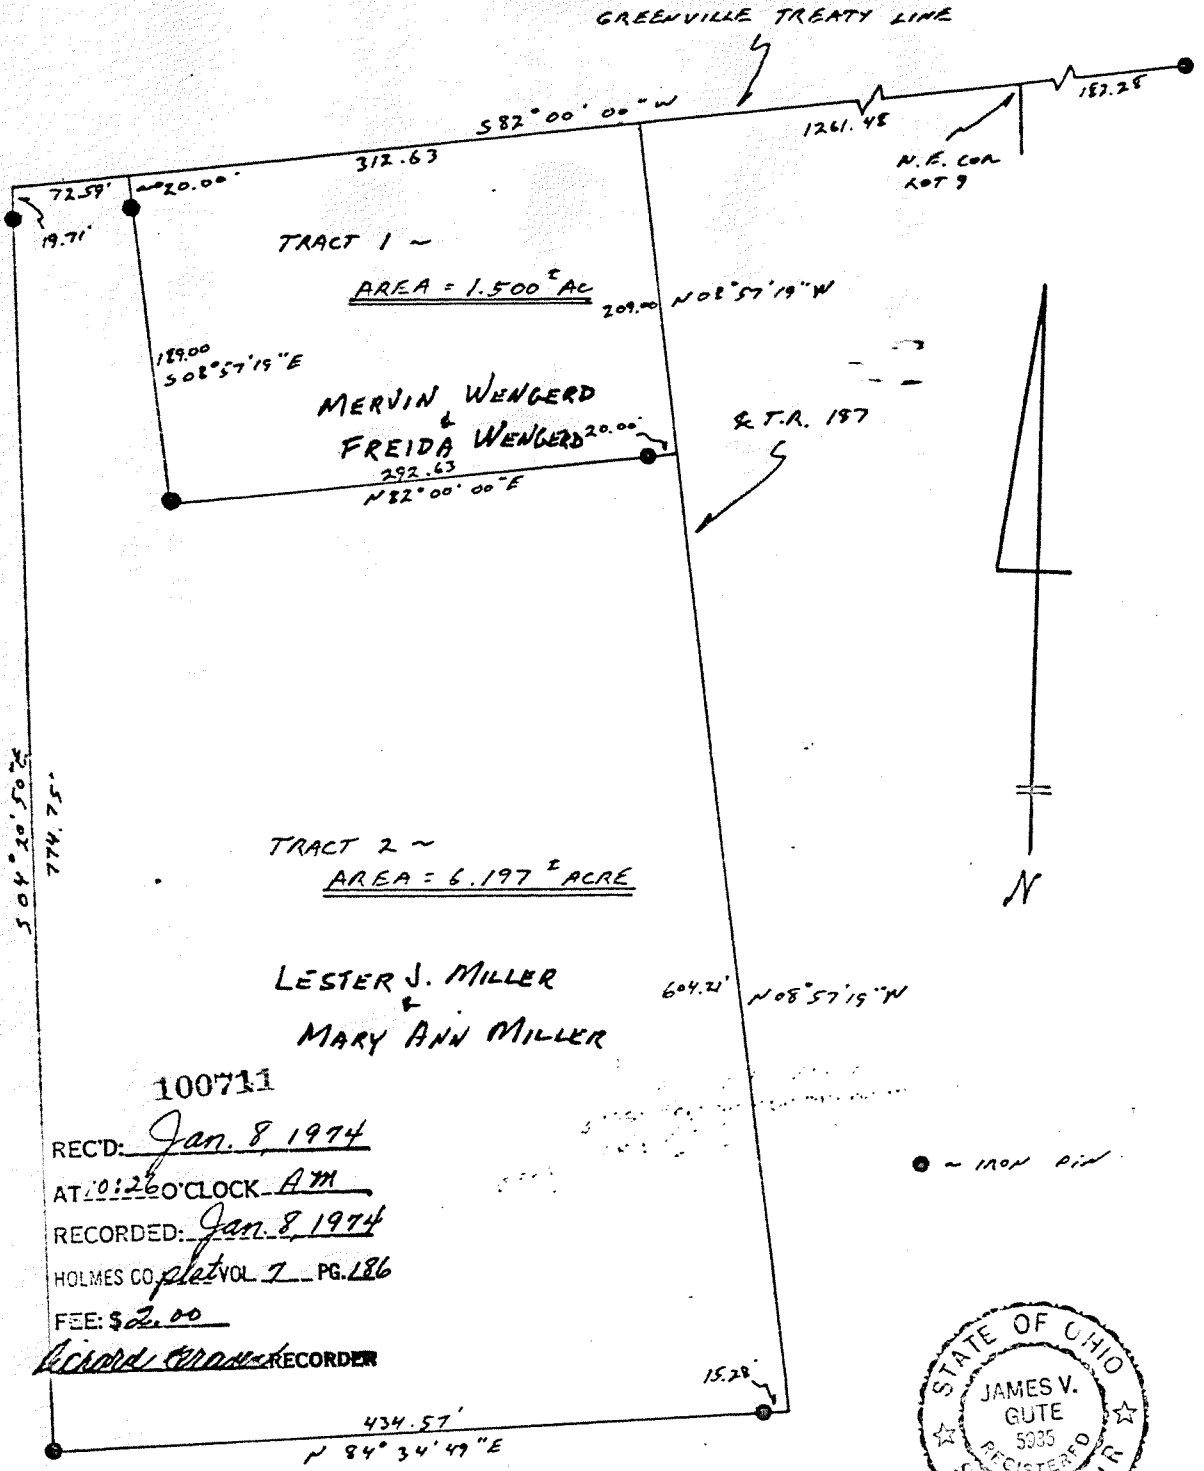 GREENVILLE TREATY LINE
S 82° 00' 00" W
182.28
1261.48
N.E. COR
LOT 9
312.63
72.59'
20.00'
19.71'
TRACT 1 ~
AREA = 1.500 ± AC
209.00 N 08° 57' 19" W
189.00
S 08° 57' 19" E
MERVIN WENGERD
&
FREIDA WENGERD
20.00'
292.63
N 82° 00' 00" E
℄ T.R. 187
S 04° 20' 50" E
774.75
N
TRACT 2 ~
AREA = 6.197 ± ACRE
LESTER J. MILLER
&
MARY ANN MILLER
604.21' N 08° 57' 19" W
100711
REC'D: Jan. 8, 1974
AT 10:26 O'CLOCK A M
RECORDED: Jan. 8, 1974
HOLMES CO. plat VOL 7 PG. 186
FEE: $ 2.00
RECORDER
~ IRON PIN
15.28'
434.57'
N 84° 34' 49" E
STATE OF OHIO
JAMES V.
GUTE
5935
REGISTERED